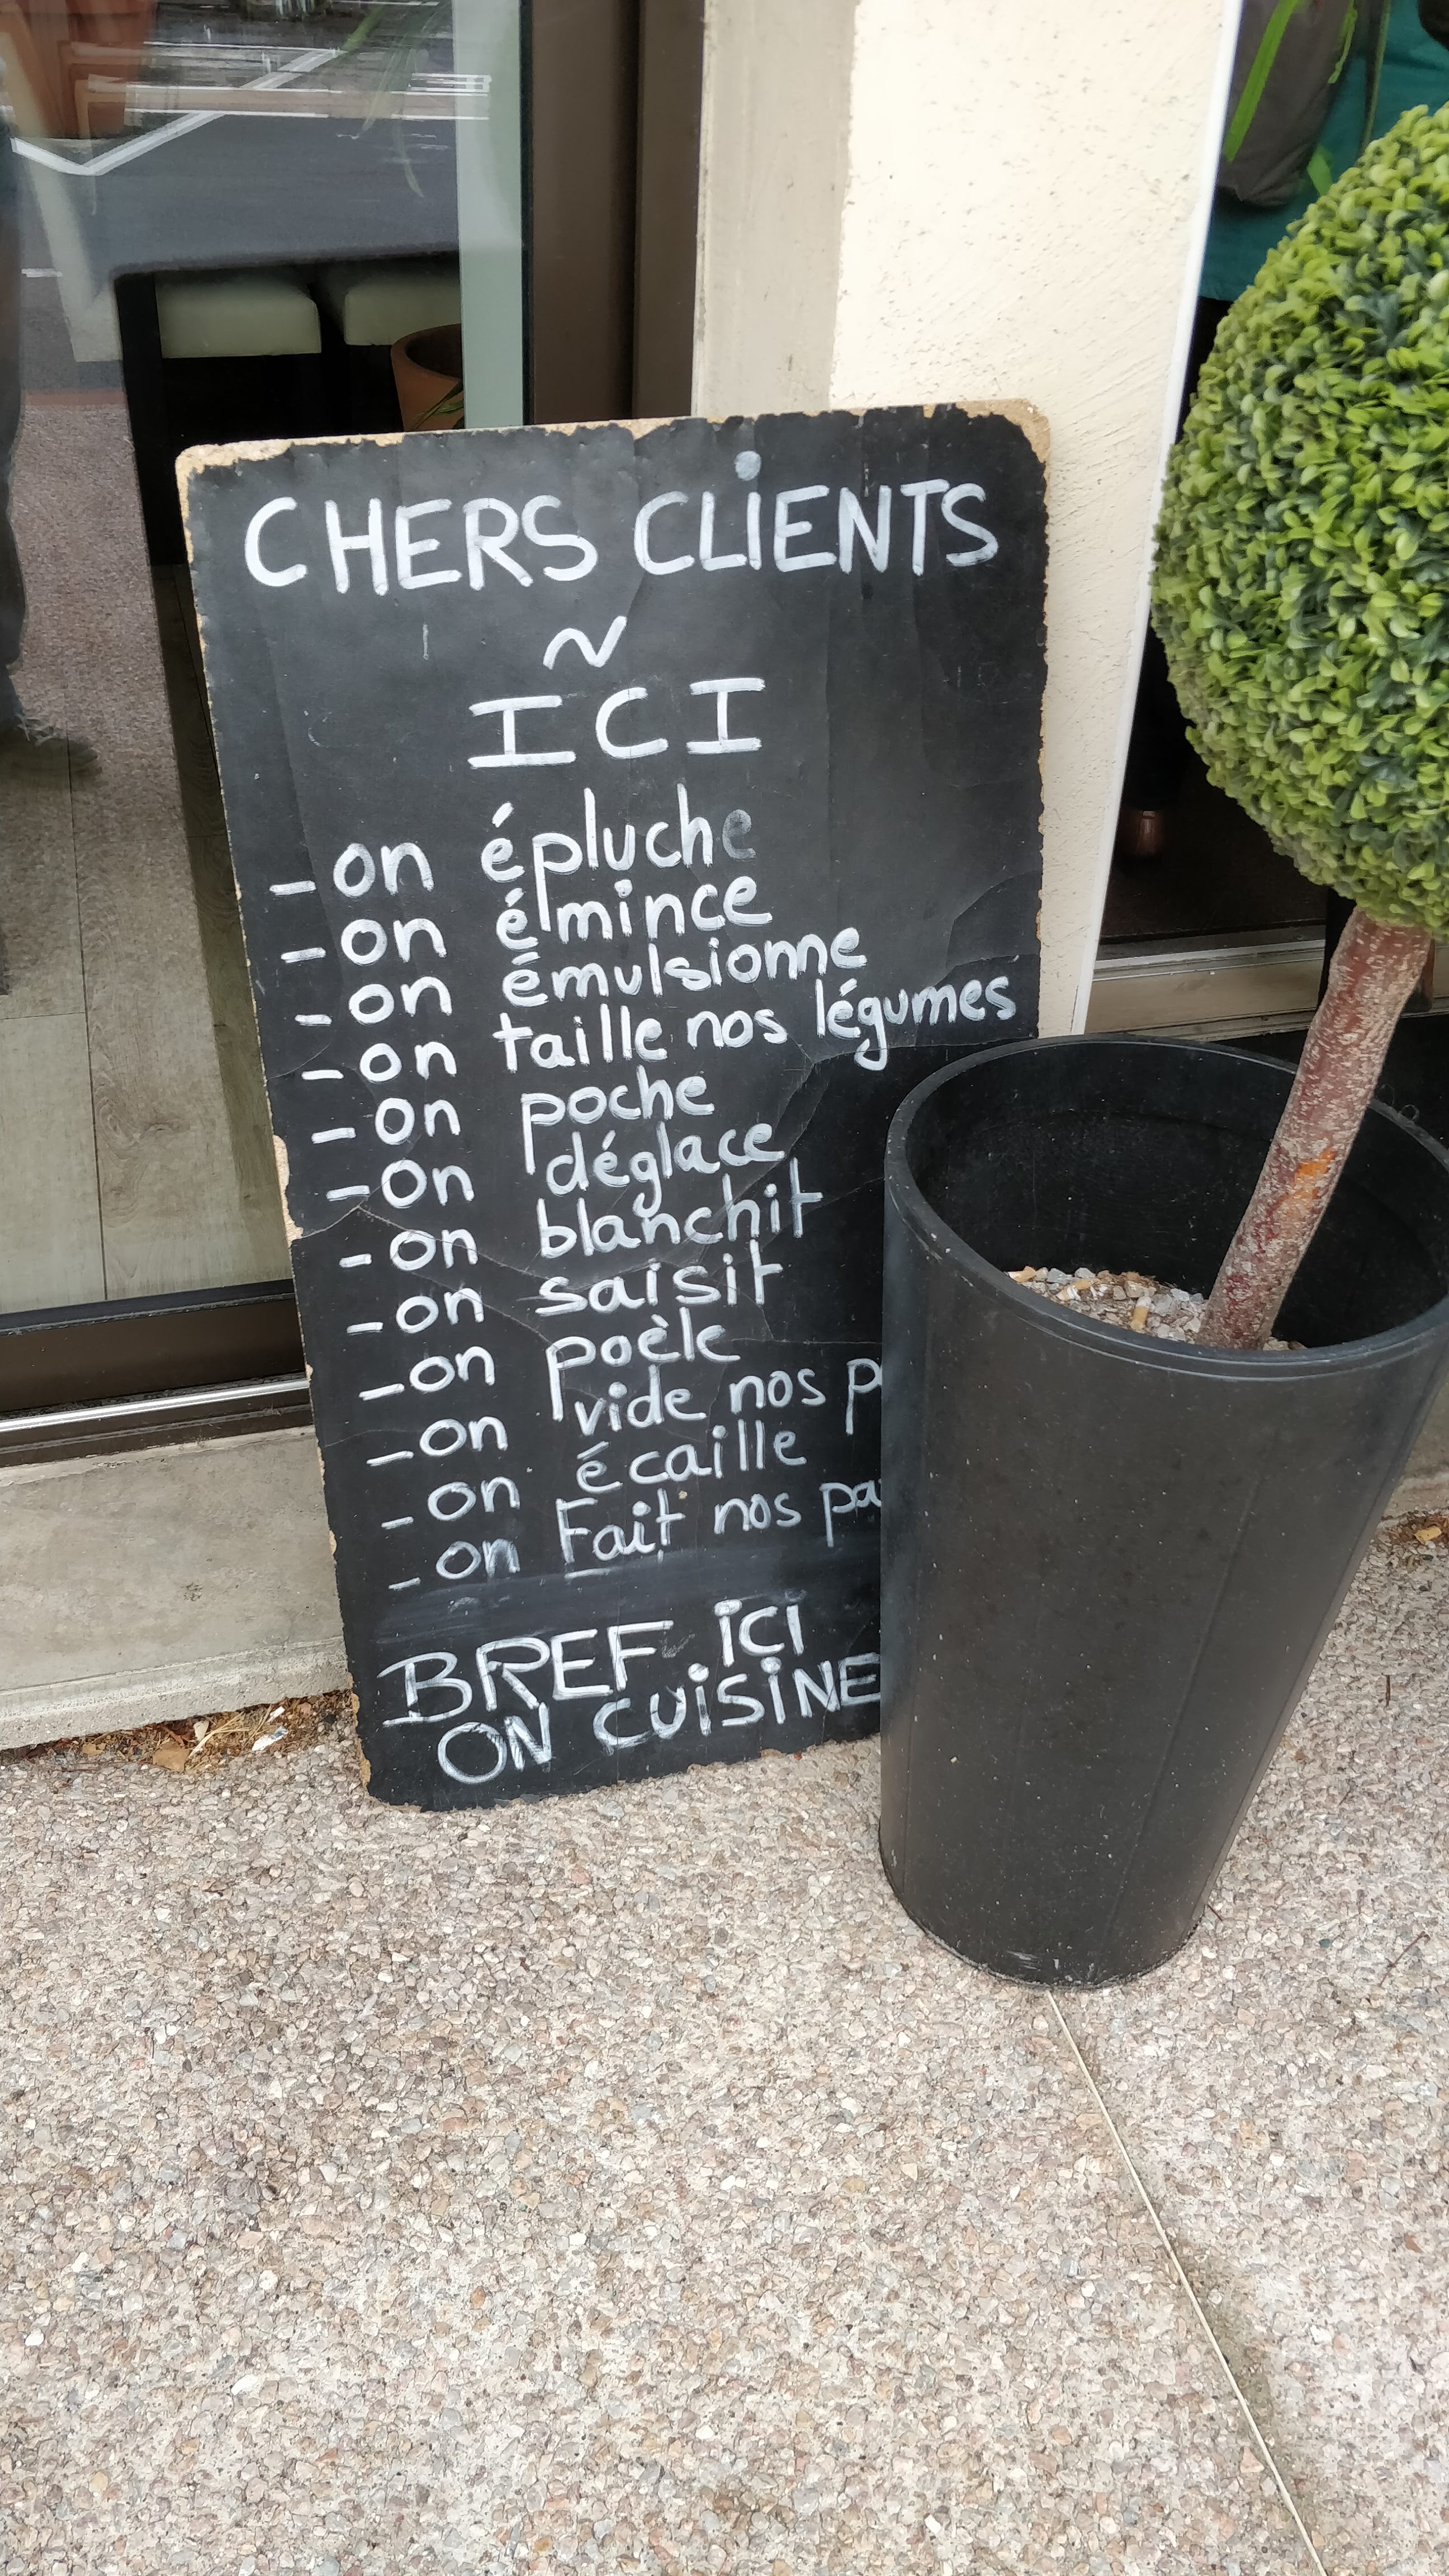 CHERS CLIENTS
~
ICI
- on épluche
- on émince
- on émulsionne
- on taille nos légumes
- on poche
- on déglace
- on blanchit
- on saisit
- on poèle
- on vide nos p
- on écaille
- on Fait nos pa
BREF ici
ON CUISINE